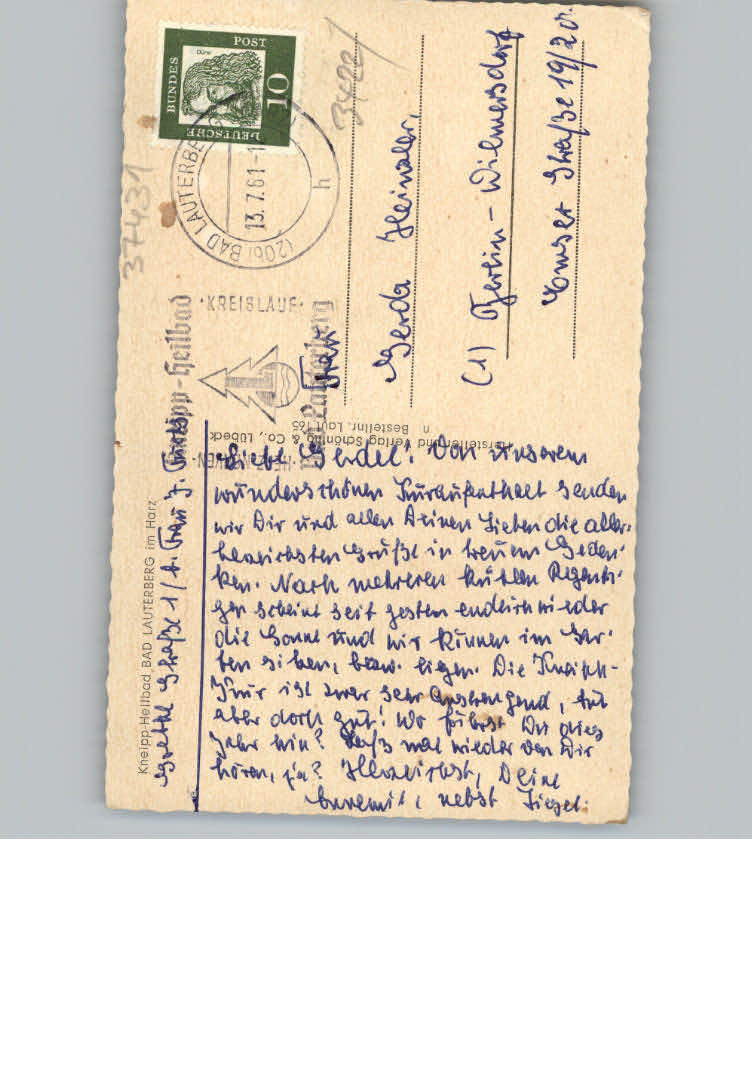 Kneipp-Heilbad BAD LAUTERBERG im Harz
Goethe Straße 1/b. Frau J.
Liebe Gerdel! Von unserem
wunderschönen Kuraufenthalt senden
wir Dir und allen Deinen Lieben die aller-
herzlichsten Grüße in treuem Geden-
ken. Nach mehreren kühlen Regenta-
gen scheint seit gestern endlich wieder
die Sonne und wir können im Gar-
ten sitzen, bezw. liegen. Die Kneipp-
Kur ist zwar sehr anstrengend, tut
aber doch gut! Wo fährst Du dies
Jahr hin? Laß mal wieder von Dir
hören, ja? Herzlichst, Deine
Annemie, nebst
Hersteller und Verlag Schöning & Co., Lübeck
Bestellnr. Laut 165
DEUTSCHE BUNDESPOST
Dürer
10
(20b) BAD LAUTERBE
13.7.61-1
h
Kneipp-Heilbad
·KREISLAUF·
Bad Lauterberg
37431
3422/
Frau
Gerda Heinzler,
(1) Berlin-Wilmersdorf
Emser Straße 19/20.